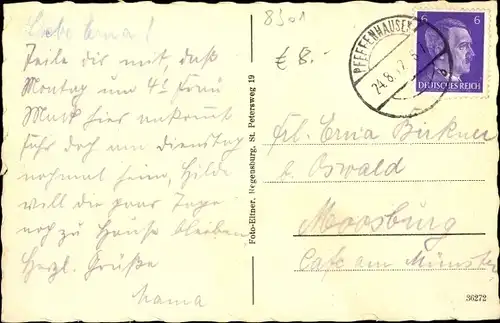 Liebe Erna!
Teile dir mit daß
Montag um 4h Frau
hier ankommt
fahr doch am Dienstag
nochmal heim, Hilde
will die paar Tage
noch zu Hause bleiben
Herzl. Grüße
Mama
Foto-Eitner, Regensburg, St. Petersweg 19
8301
€ 8.-
PFEFFENHAUSEN
24.8.
6
6
DEUTSCHES REICH
Frl. Erna Birkner
b. Oswald
Moosburg
Cafe am Münster
36272